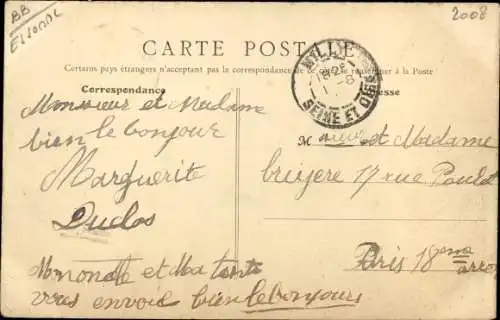 BB
ESSONNE
2008
CARTE POSTALE
Certains pays étrangers n'acceptant pas la correspondance de se renseigner à la Poste
Correspondance
Adresse
MILLY
SEINE ET OISE
Monsieur et Madame
bien le bonjour
Marguerite
Duclos
M et Madame
bruyere 17 rue
Paris 18eme arro
et Ma tante
vous envoie bien le bonjour